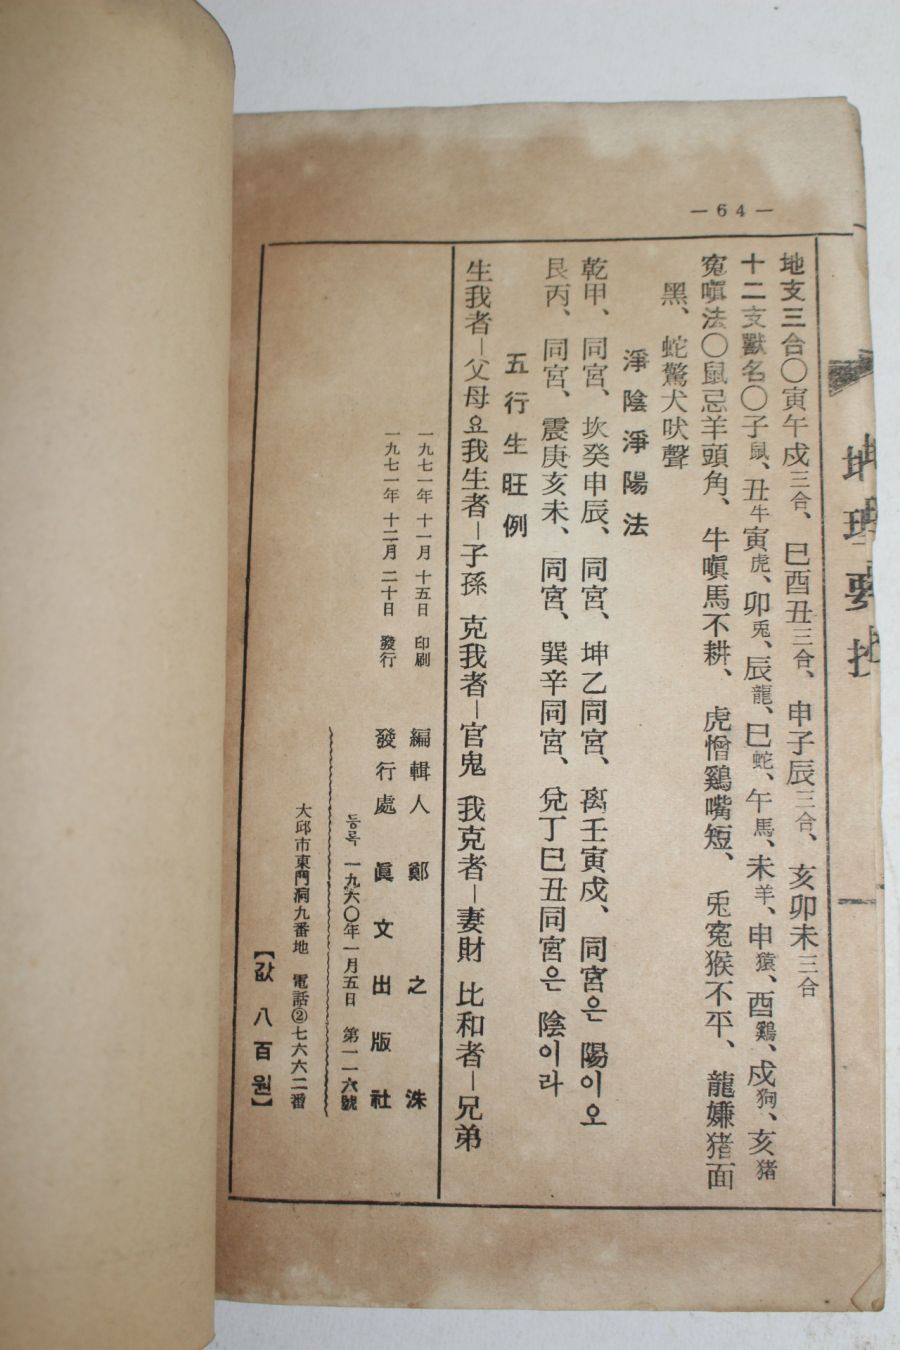 —64—
地理要抄
地支三合○寅午戌三合、巳酉丑三合、申子辰三合、亥卯未三合
十二支獸名○子鼠、丑牛寅虎、卯兎、辰龍、巳蛇、午馬、未羊、申猿、酉鷄、戌狗、亥猪
寃嗔法○鼠忌羊頭角、牛嗔馬不耕、虎憎鷄嘴短、兎寃猴不平、龍嫌猪面
黑、蛇驚犬吠聲
淨陰淨陽法
乾甲、同宮、坎癸申辰、同宮、坤乙同宮、离壬寅戌、同宮은陽이오
艮丙、同宮、震庚亥未、同宮、巽辛同宮、兌丁巳丑同宮은陰이라
五行生旺例
生我者—父母요我生者—子孫 克我者—官鬼 我克者—妻財 比和者—兄弟
一九七一年 十一月 十五日 印刷
一九七一年 十二月 二十日 發行
編輯人 鄭之洙
發行處 眞文出版社
등록 一九六○年一月五日 第一一六號
大邱市東門洞九番地 電話②七六六二番
【값 八百원】